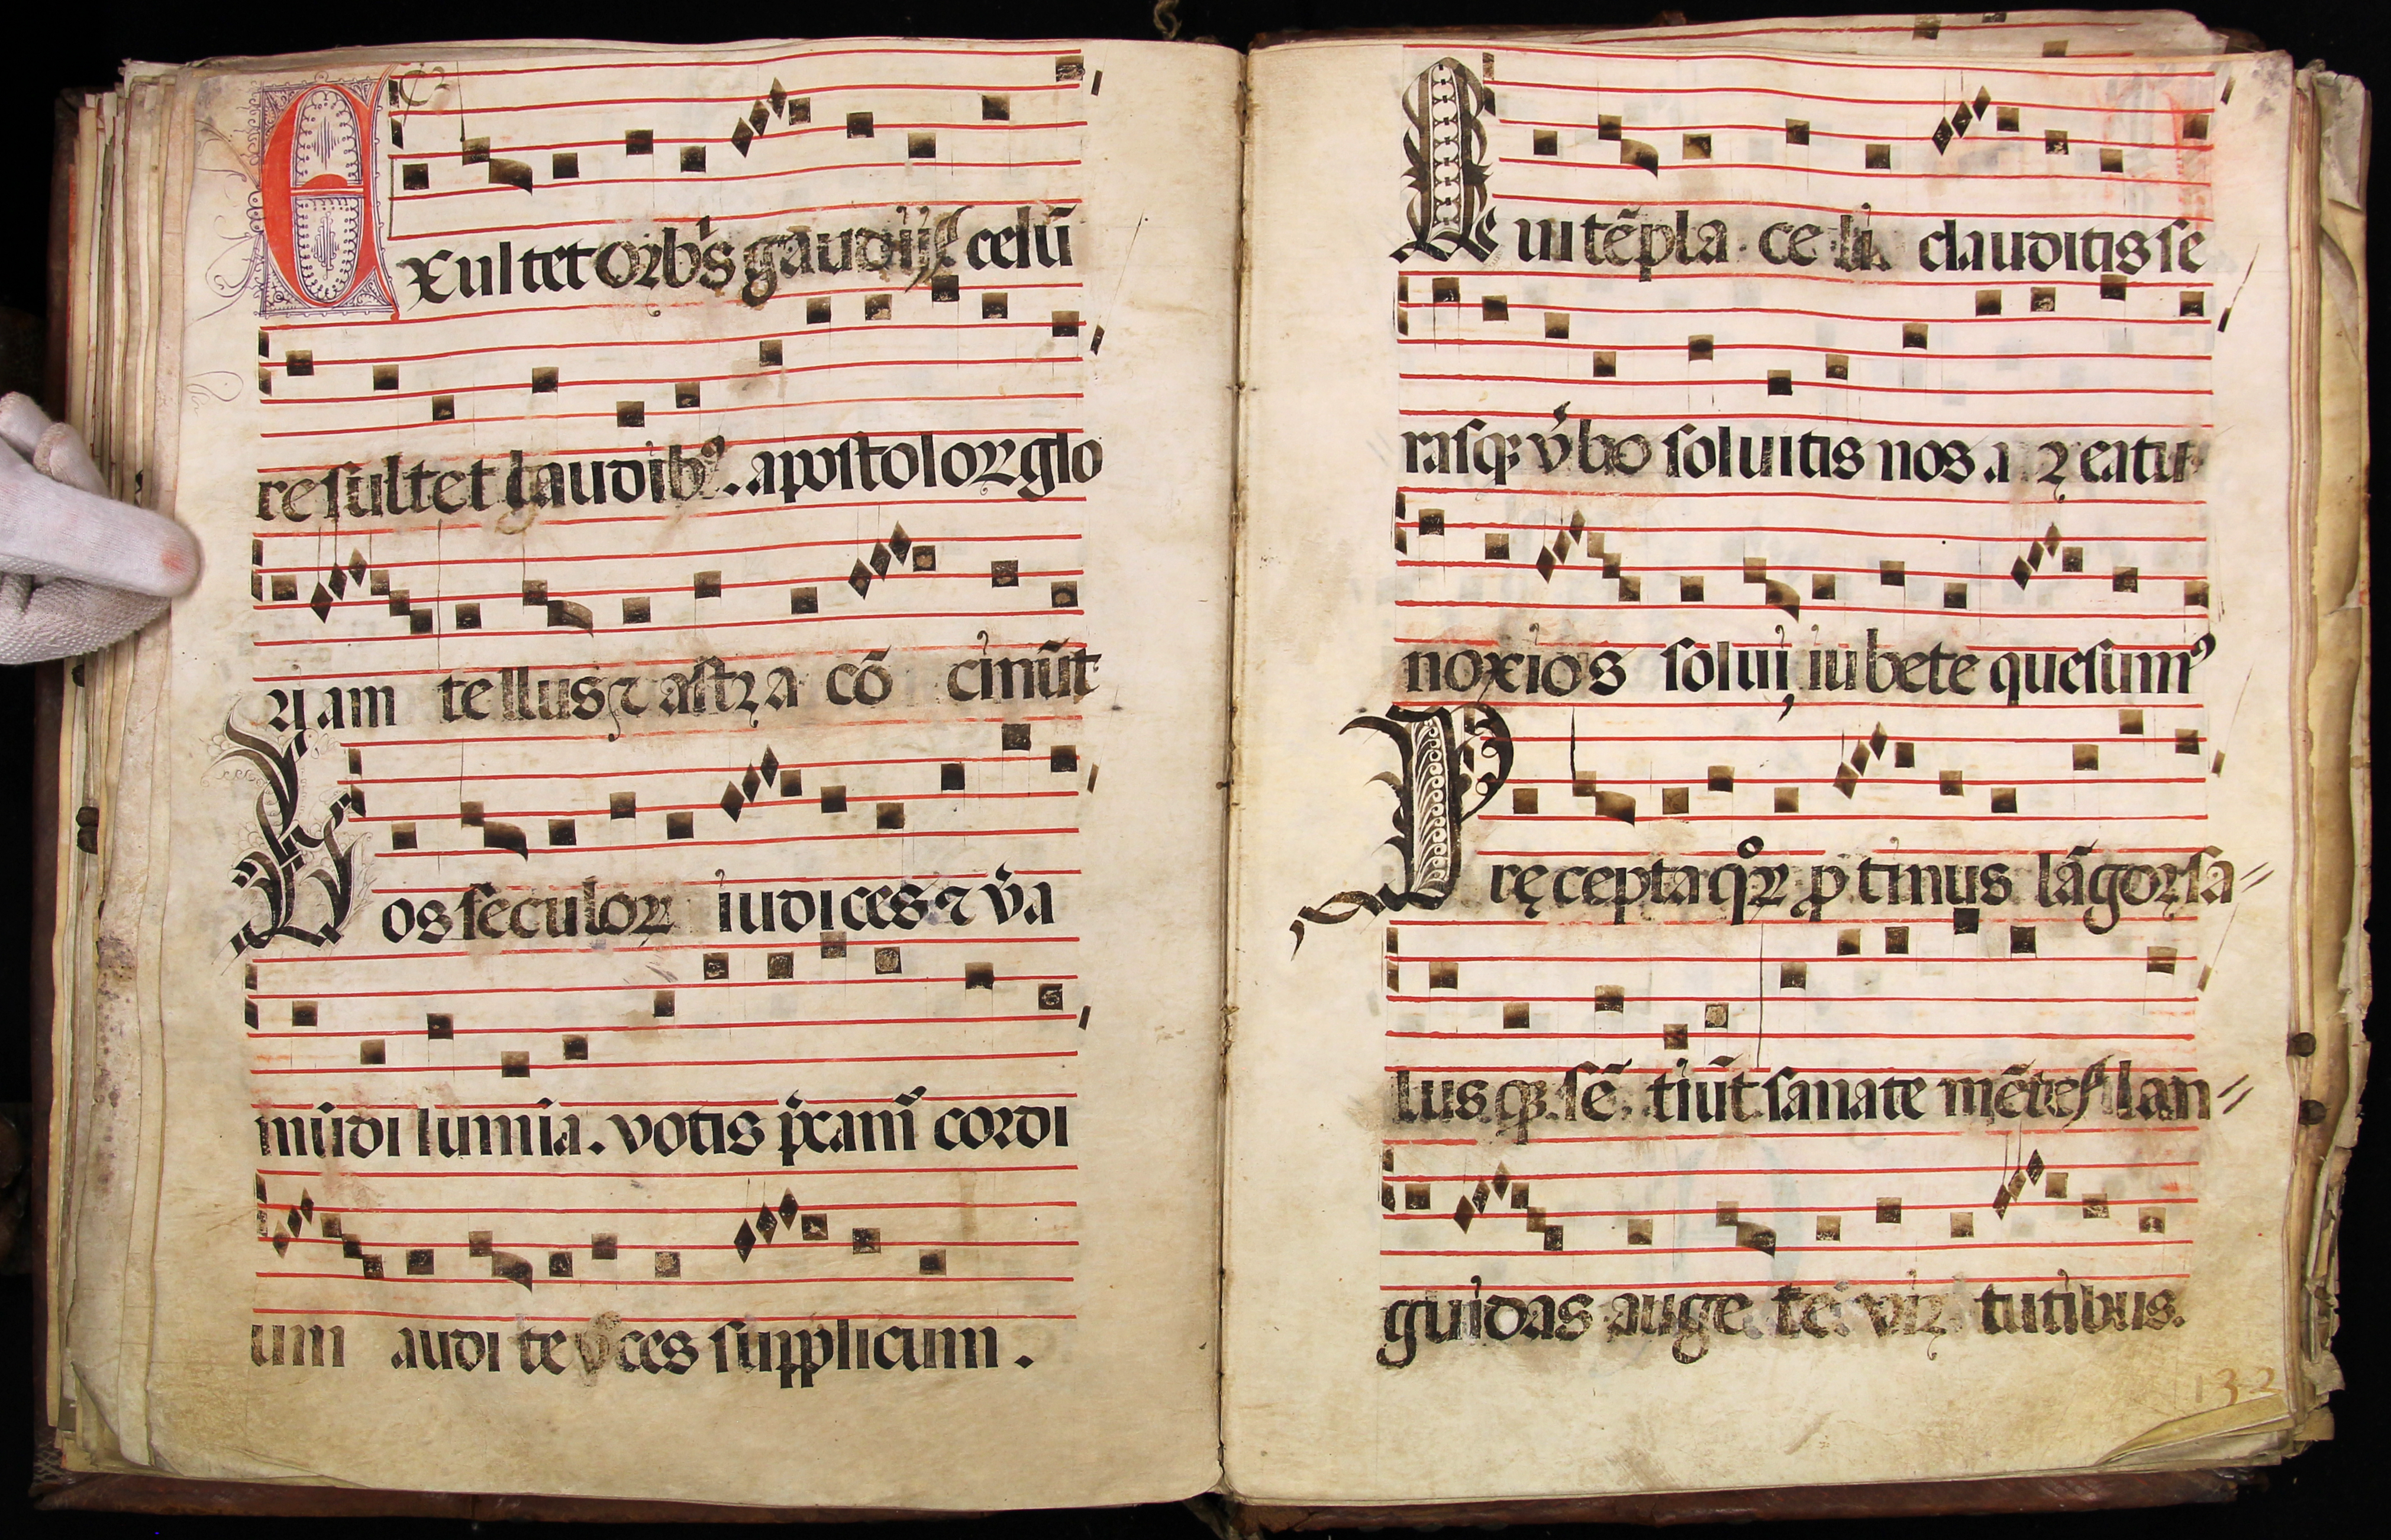 Exultet orb's gaudijs celū
resultet laudibꝰ. apostoloꝝ glo
riam tellus ⁊ astra cō cinūt
Vos seculoꝝ iudices ⁊ v̓a
mūdi lumīa. votis p̄camꝰ cordi
um audite voces supplicum.
Qui tēpla celi clauditis se
rasqꝫ v̓bo soluitis nos a reatu
noxios solui iubete quesumꝰ
Pręcepta qͦꝝ ꝓtinus lāgoꝝ sa
lusqꝫ sētiūt sanate mētes lan
guidas augete virtutibus.
133